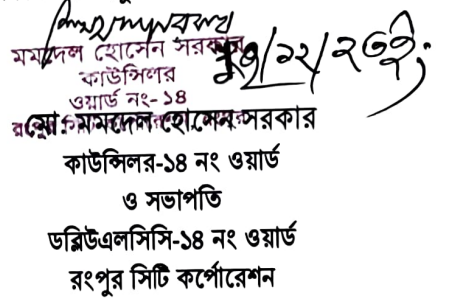 মমদেল হোসেন সরকার
কাউন্সিলর
ওয়ার্ড নং- ১৪
মো: মমদেল হোসেন সরকার
কাউন্সিলর-১৪ নং ওয়ার্ড
ও সভাপতি
ডব্লিউএলসিসি-১৪ নং ওয়ার্ড
রংপুর সিটি কর্পোরেশন